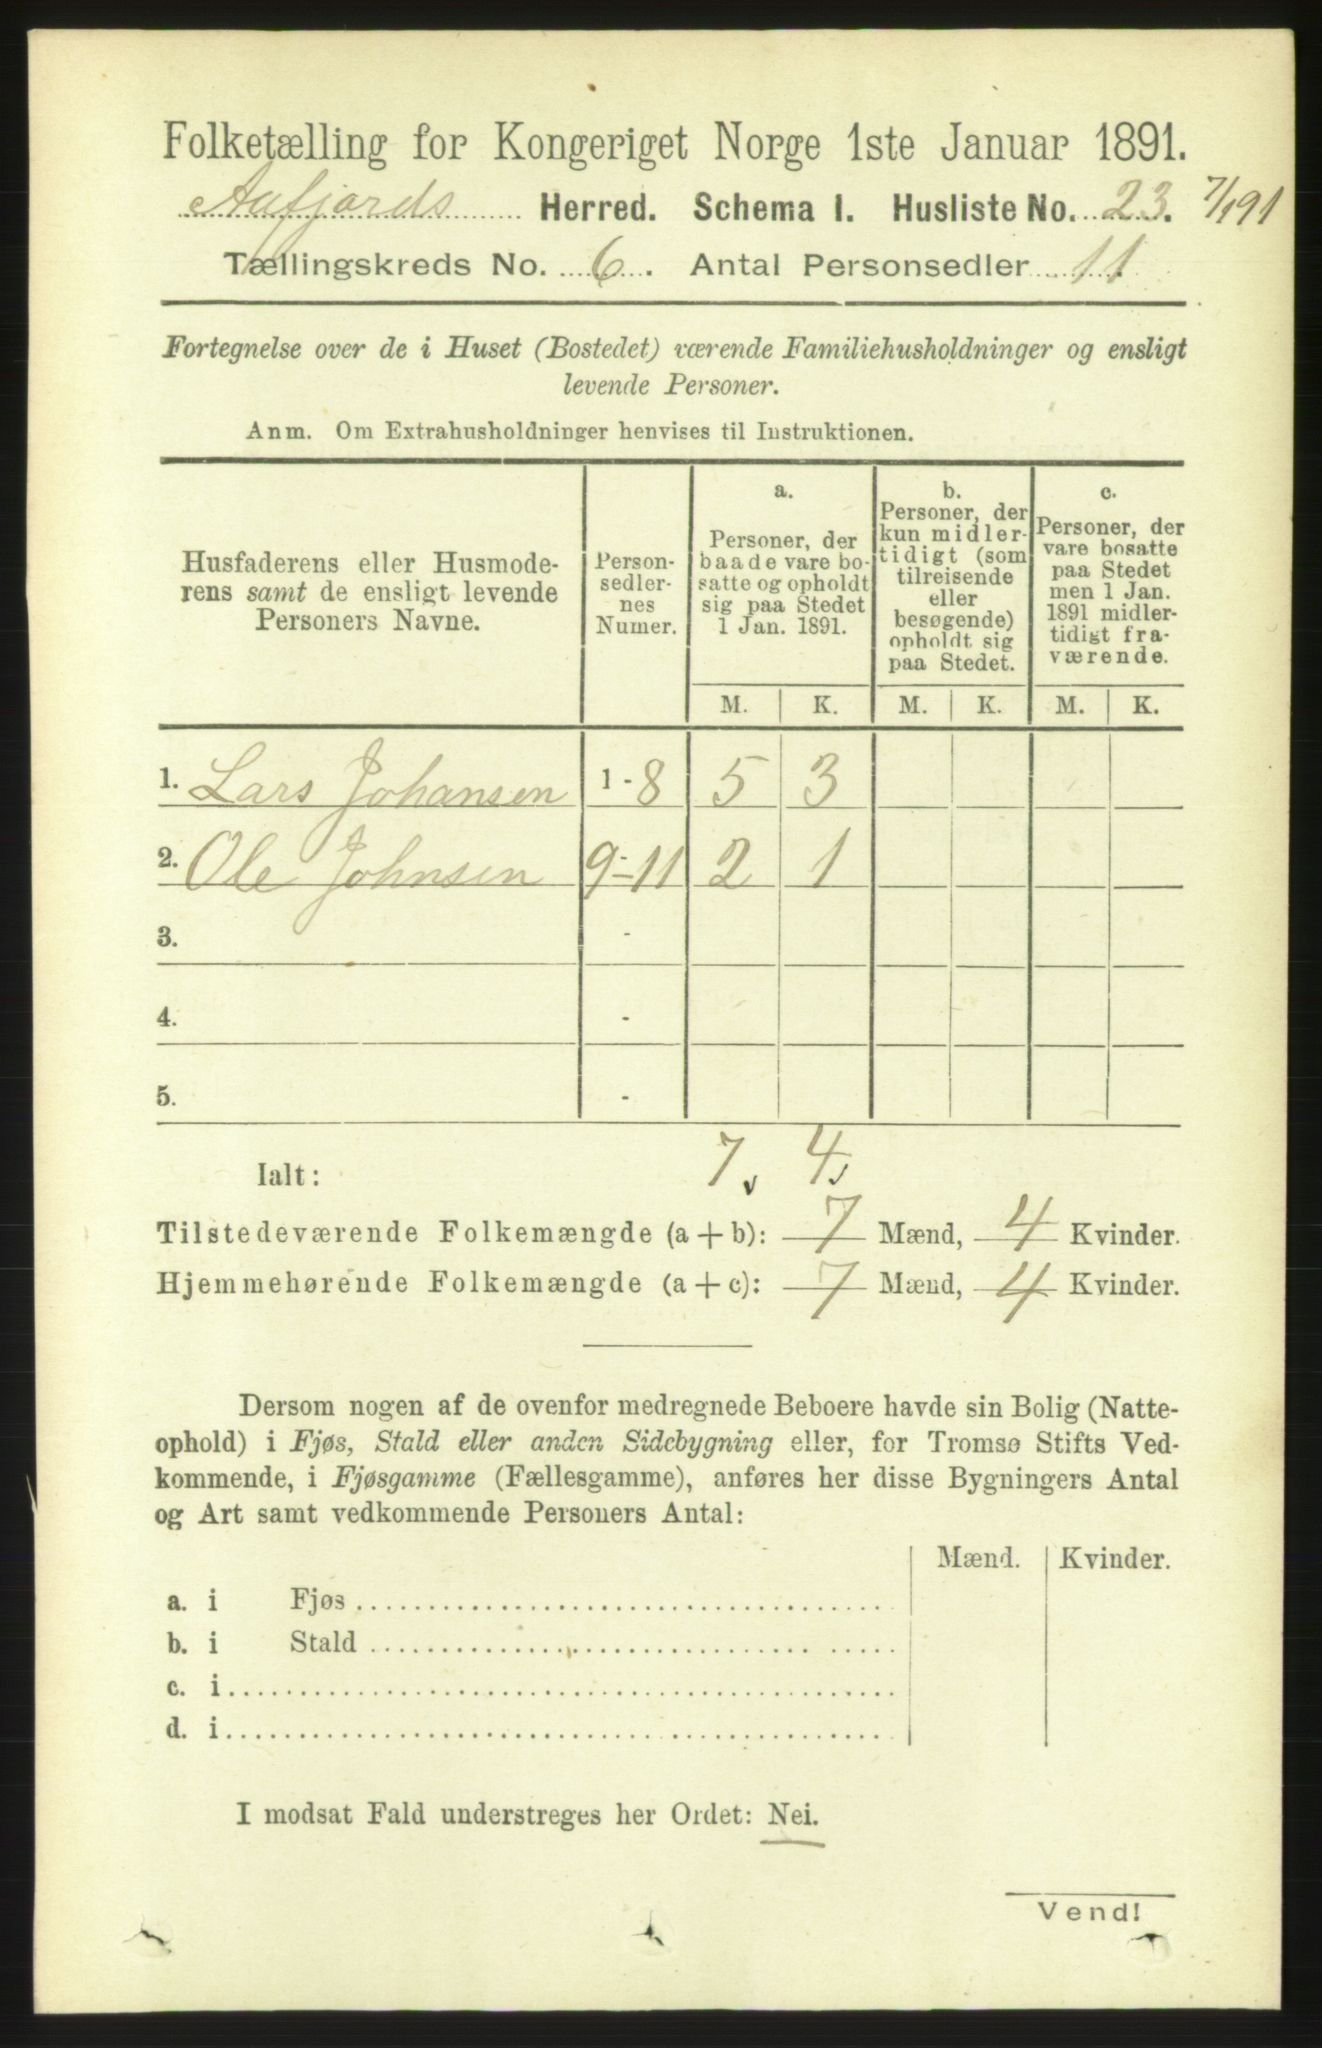 Folketælling for Kongeriget Norge 1ste Januar 1891.
Aafjords Herred. Schema I. Husliste No. 23. 7/1 91
Tællingskreds No. 6. Antal Personsedler 11
Fortegnelse over de i Huset (Bostedet) værende Familiehusholdninger og ensligt
levende Personer.
Anm. Om Extrahusholdninger henvises til Instruktionen.
Husfaderens eller Husmode-
rens samt de ensligt levende
Personers Navne.
Person-
sedler-
nes
Numer.
a.
Personer, der
baade vare bo-
satte og opholdt
sig paa Stedet
1 Jan. 1891.
b.
Personer, der
kun midler-
tidigt (som
tilreisende
eller
besøgende)
opholdt sig
paa Stedet.
c.
Personer, der
vare bosatte
paa Stedet
men 1 Jan.
1891 midler-
tidigt fra-
værende.
M. K. M. K. M. K.
1. Lars Johansen 1-8 5 3
2. Ole Johnsen 9-11 2 1
3. -
4. -
5. -
Ialt: 7 4
Tilstedeværende Folkemængde (a+b): 7 Mænd, 4 Kvinder.
Hjemmehørende Folkemængde (a+c): 7 Mænd, 4 Kvinder.
Dersom nogen af de ovenfor medregnede Beboere havde sin Bolig (Natte-
ophold) i Fjøs, Stald eller anden Sidebygning eller, for Tromsø Stifts Ved-
kommende, i Fjøsgamme (Fællesgamme), anføres her disse Bygningers Antal
og Art samt vedkommende Personers Antal:
Mænd. Kvinder.
a. i Fjøs
b. i Stald
c. i
d. i
I modsat Fald understreges her Ordet: Nei.
Vend!